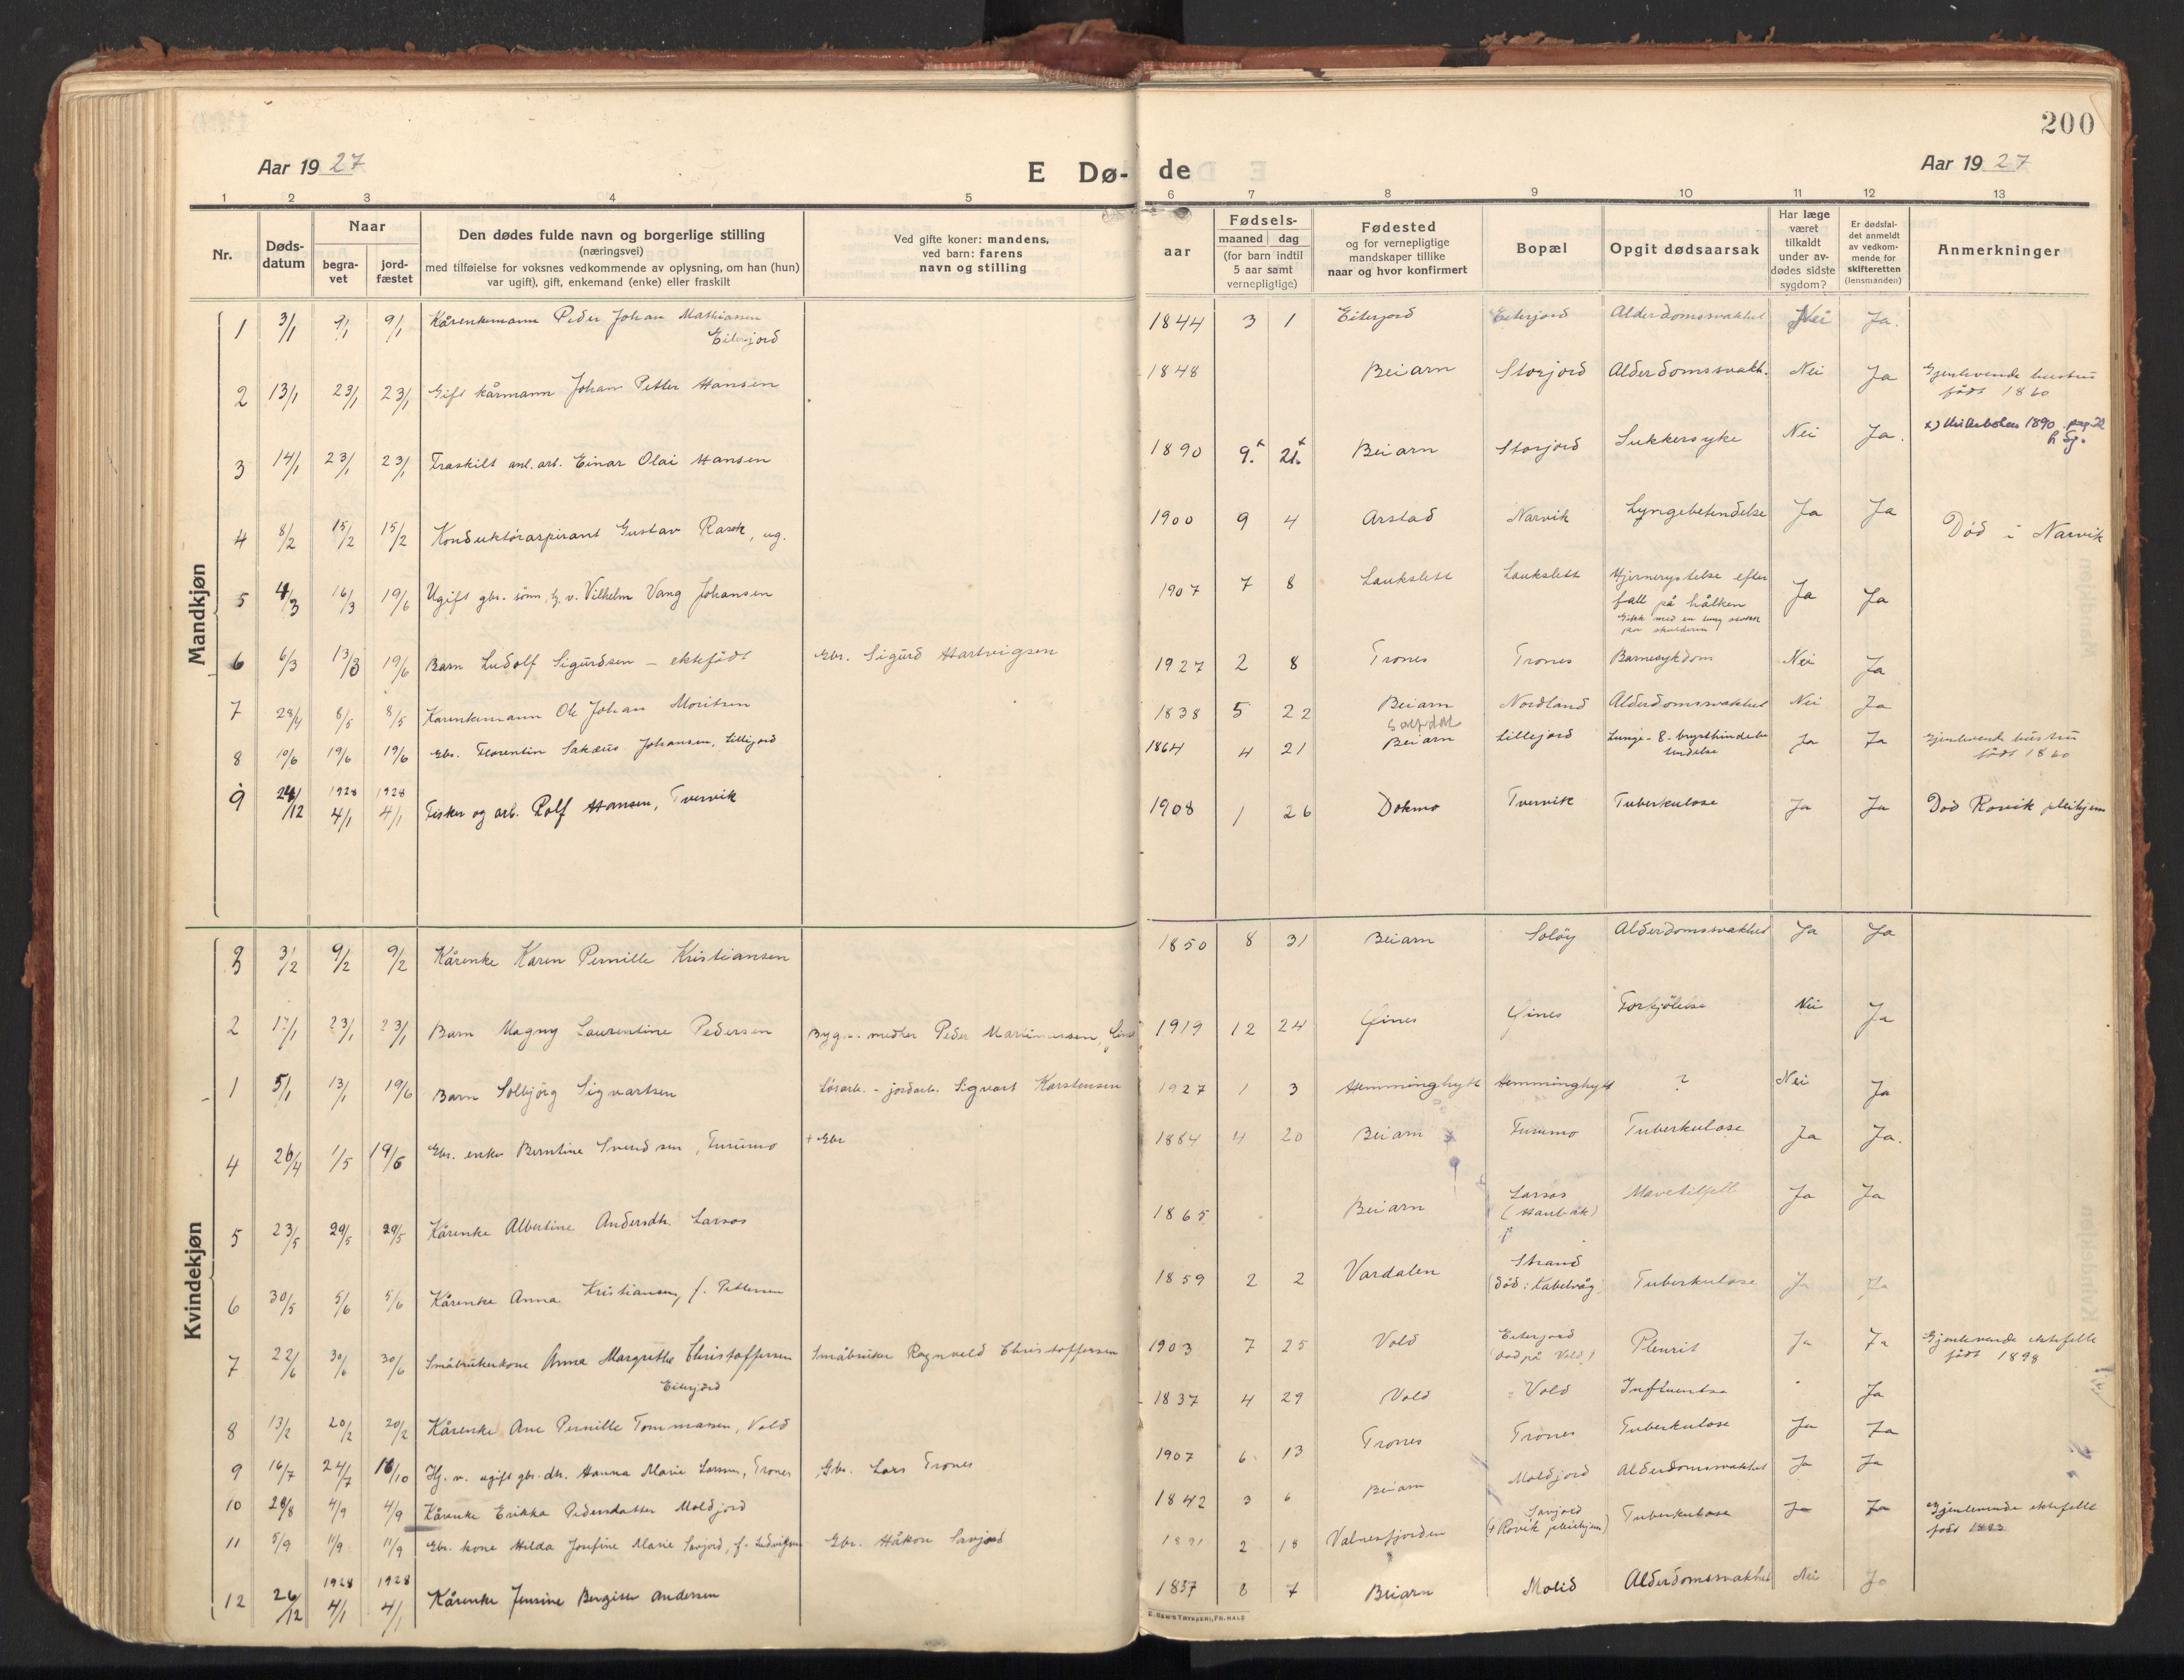 200
Aar 19 27
E Dø- de
Aar 19 27
1 2 3 4 5 6 7 8 9 10 11 12 13
Nr.
Døds-
datum
Naar
begra-
vet
jord-
fæstet
Den dødes fulde navn og borgerlige stilling
(næringsvei)
med tilføielse for voksnes vedkommende av oplysning, om han (hun)
var ugift), gift, enkemand (enke) eller fraskilt
Ved gifte koner: mandens,
ved barn: farens
navn og stilling
Fødsels-
aar
maaned dag
(for barn indtil
5 aar samt
vernepligtige)
Fødested
og for vernepligtige
mandskaper tillike
naar og hvor konfirmert
Bopæl
Opgit dødsaarsak
Har læge
været
tilkaldt
under av-
dødes sidste
sygdom?
Er dødsfal-
det anmeldt
av vedkom-
mende for
skifteretten
(lensmanden)
Anmerkninger
Mandkjøn
1 3/1 9/1 9/1 Kårenkemann Peder Johan Mathiassen
Eiterjord
1844 3 1 Eiterjord Eiterjord Alderdomssvakhet Nei Ja.
2 13/1 23/1 23/1 Gift kårmann Johan Petter Hansen
1848 Beiarn Storjord Alderdomssvakh. Nei Ja Gjenlevende hustru
født 1860
3 14/1 23/1 23/1 Fraskilt anl. arb. Einar Olai Hansen
1890 9.x 21.x Beiarn Storjord Sukkersyke Nei Ja. x) 1890 pag.
4 8/2 15/2 15/2 Konduktøraspirant Gustav Rask, ug.
1900 9 4 Arstad Narvik Lyngebetendelse Ja Ja Død i Narvik
5 4/3 16/3 19/6 Ugift gbr. sønn, hj. v. Vilhelm Vang Johansen
1907 7 8 Laukslett Laukslett Hjernerystelse efter
fall på hålken
Gikk med en tung
på skulderen
Ja Ja
6 6/3 13/3 19/6 Barn Ludolf Sigurdsen – ektefødt Gbr. Sigurd Hartvigsen
1927 2 8 Trones Trones Barnesykdom Nei Ja
7 28/4 8/5 8/5 Kårenkemann Ole Johan Moritsen
1838 5 22 Beiarn Nordland Alderdomssvakhet Nei Ja
8 10/6 19/6 19/6 Gbr. Florentin Sakæus Johansen, Lillejord
1864 4 21 Saltdal
Beiarn Lillejord Lunge- & brysthindebe
tendelse Ja Ja Gjenlevende hustru
født 1860
9 24/12 1928 4/1 1928 4/1 Fisker og arb. Rolf Hansen, Tvervik
1908 1 26 Dokmo Tvervik Tuberkulose Ja Ja Død Rovik pleihjem
Kvindekjøn
3 3/2 9/2 9/2 Kårenke Karen Pernille Kristiansen
1850 8 31 Beiarn Soløy Alderdomssvakhet Ja Ja
2 17/1 23/1 23/1 Barn Magny Laurentine Pedersen Peder Martinussen,
1919 12 24 Gines Gines Forkjølelse Nei Ja
1 5/1 13/1 19/6 Barn Solbjørg Sigvartsen Løsarb. - jordarb. Sigvart Karstensen
1927 1 3 Hemminghytt Hemminghytt ? Nei Ja
4 26/4 1/5 19/6 Gbr. enke Berntine Svendsen, Furumo + Gbr
1864 4 20 Beiarn Furumo Tuberkulose Ja Ja.
5 23/5 29/5 29/5 Kårenke Albertine Andersdtr. Larsos
1865 Beiarn Larsos
Mavetilfelle Ja Ja
6 30/5 5/6 5/6 Kårenke Anna Kristiansen, f. Pettersen
1859 2 2 Vardalen Strand
(død: Kabelvåg) Tuberkulose Ja Ja
7 22/6 30/6 30/6 Småbrukerkone Anna Margrethe Christoffersen
Eiterjord
Småbruker Ragnvald Christoffersen
1903 7 25 Vold Eiterjord
(død på Vold) Pleurit Ja Ja Gjenlevende ektefelle
født 1898
8 13/2 20/2 20/2 Kårenke Ane Pernille Tommassen, Vold
1837 4 29 Vold Vold Influentsa Ja
9 16/7 24/7 16/10 Hj. v. ugift gbr. dtr. Hanna Marie Larsen, Trones Gbr. Lars Trones
1907 6 13 Trones Trones Tuberkulose Ja Ja
10 28/8 4/9 4/9 Kårenke Erikka Pedersdatter Moldjord
1842 3 6 Beiarn Moldjord Alderdomssvakhet Ja Ja
11 5/9 11/9 11/9 Gbr. kone Hilda Josefine Marie Savjord, f. Ludvigsen Gbr. Håkon Savjord
1891 2 18 Valnesfjorden Savjord
(+ Rovik pleiehjem) Tuberkulose Ja Ja Gjenlevende ektefelle
født
12 26/12 1928 4/1 1928 4/1 Kårenke Jensine Bergitte Andersen
1837 8 7 Beiarn Molid Alderdomssvakhet Nei Ja
E. SEM'S TRYKKERI, FR. HALD